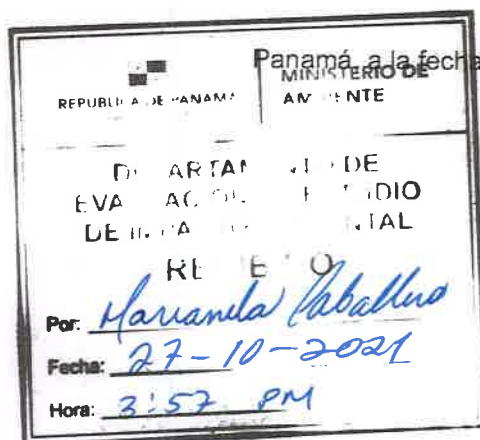 Panamá, a la fecha
REPUBLICA DE PANAMA
MINISTERIO DE
AMBIENTE
DEPARTAMENTO DE
EVALUACIÓN DE ESTUDIO
DE IMPACTO AMBIENTAL
RECIBIDO
Por: Marianela Caballero
Fecha: 27-10-2021
Hora: 3:57 PM